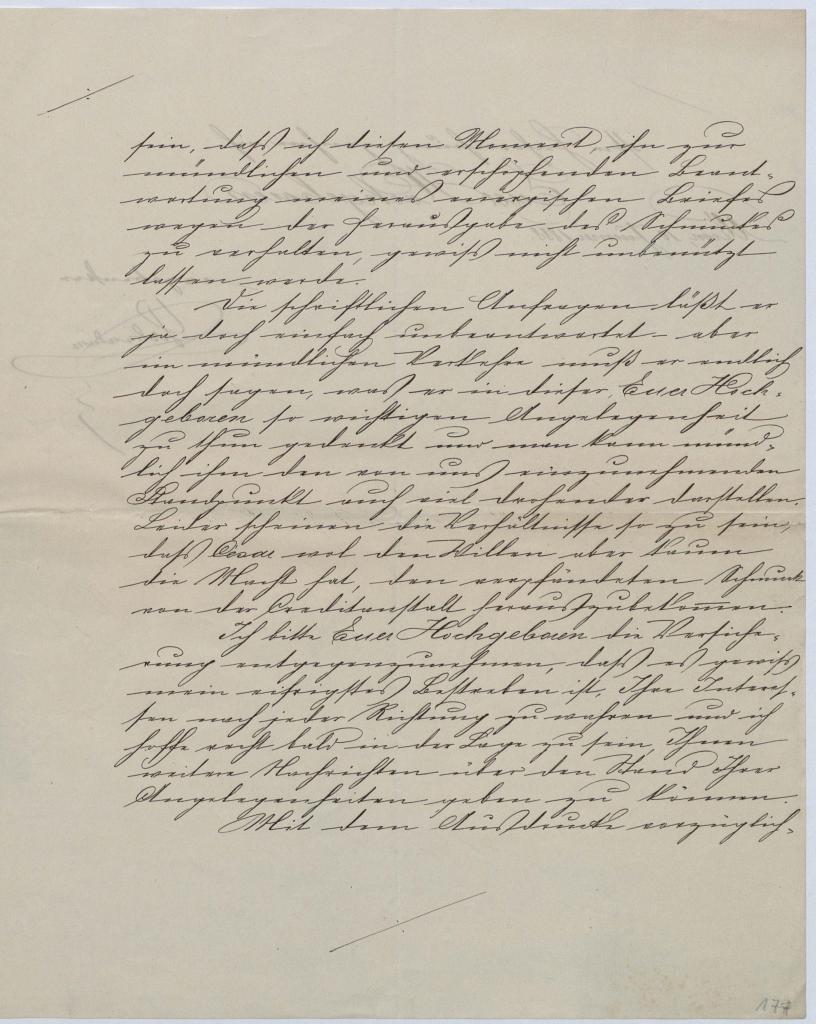 sein, dass ich diesen Moment, ihn zur
mündlichen und erschöpfenden Beant-
wortung meines energischen Briefes
wegen der Herausgabe des Schmuckes
zu verhalten, gewiss nicht unbenützt
lassen werde.
Die schriftlichen Anfragen läßt er
ja doch einfach unbeantwortet – aber
im mündlichen Verkehre muß er endlich
doch sagen, was er in dieser, Euer Hoch-
geboren so wichtigen Angelegenheit
zu thun gedenkt und man kann münd-
lich ihm den von uns einzunehmenden
Standpunkt auch viel drohender darstellen.
Leider scheinen die Verhältnisse so zu sein,
dass Cesar wol den Willen aber kaum
die Macht hat, den verpfändeten Schmuck
von der Creditanstalt herauszubekommen.
Ich bitte Euer Hochgeboren die Versiche-
rung entgegenzunehmen, dass es gewiss
mein eifrigstes Bestreben ist, Ihre Interes-
sen nach jeder Richtung zu wahren und ich
hoffe recht bald in der Lage zu sein, Ihnen
weitere Nachrichten über den Stand Ihrer
Angelegenheiten geben zu können.
Mit dem Ausdrucke vorzüglich-
177